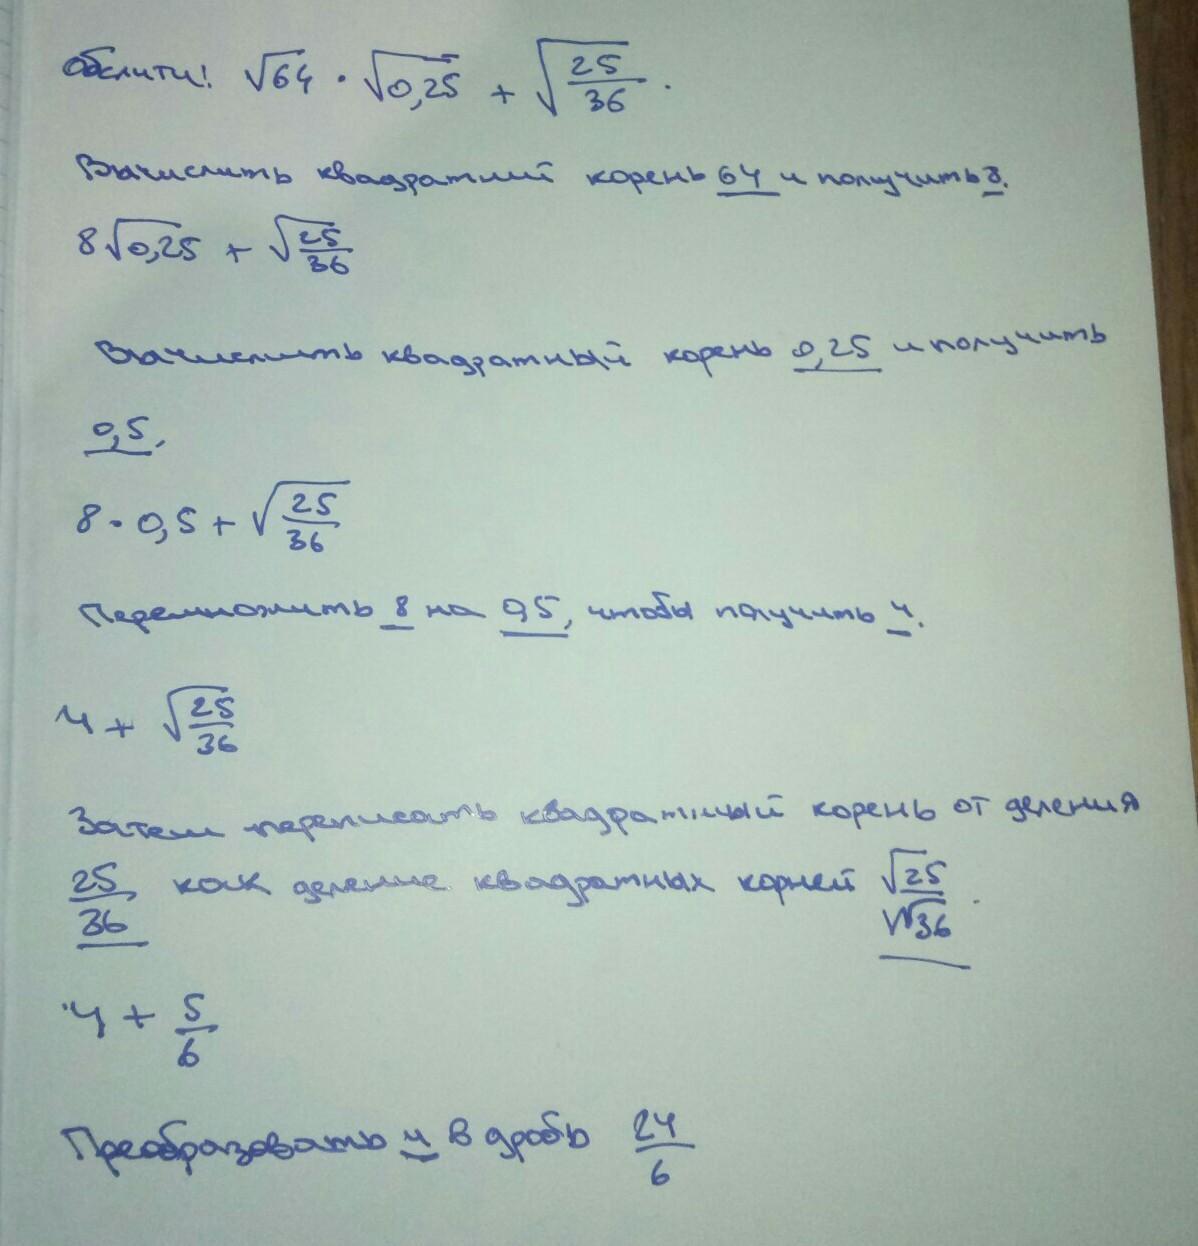 Обчислити: √64 · √0,25 + √(25/36).
Вычислить квадратний корень 64 и получить 8.
8√0,25 + √(25/36)
Вычислить квадратный корень 0,25 и получить
0,5.
8 · 0,5 + √(25/36)
Перемножить 8 на 0,5, чтобы получить 4.
4 + √(25/36)
Затем переписать квадратный корень от деления
25/36 как деление квадратных корней √25/√36.
4 + 5/6
Преобразовать 4 в дробь 24/6